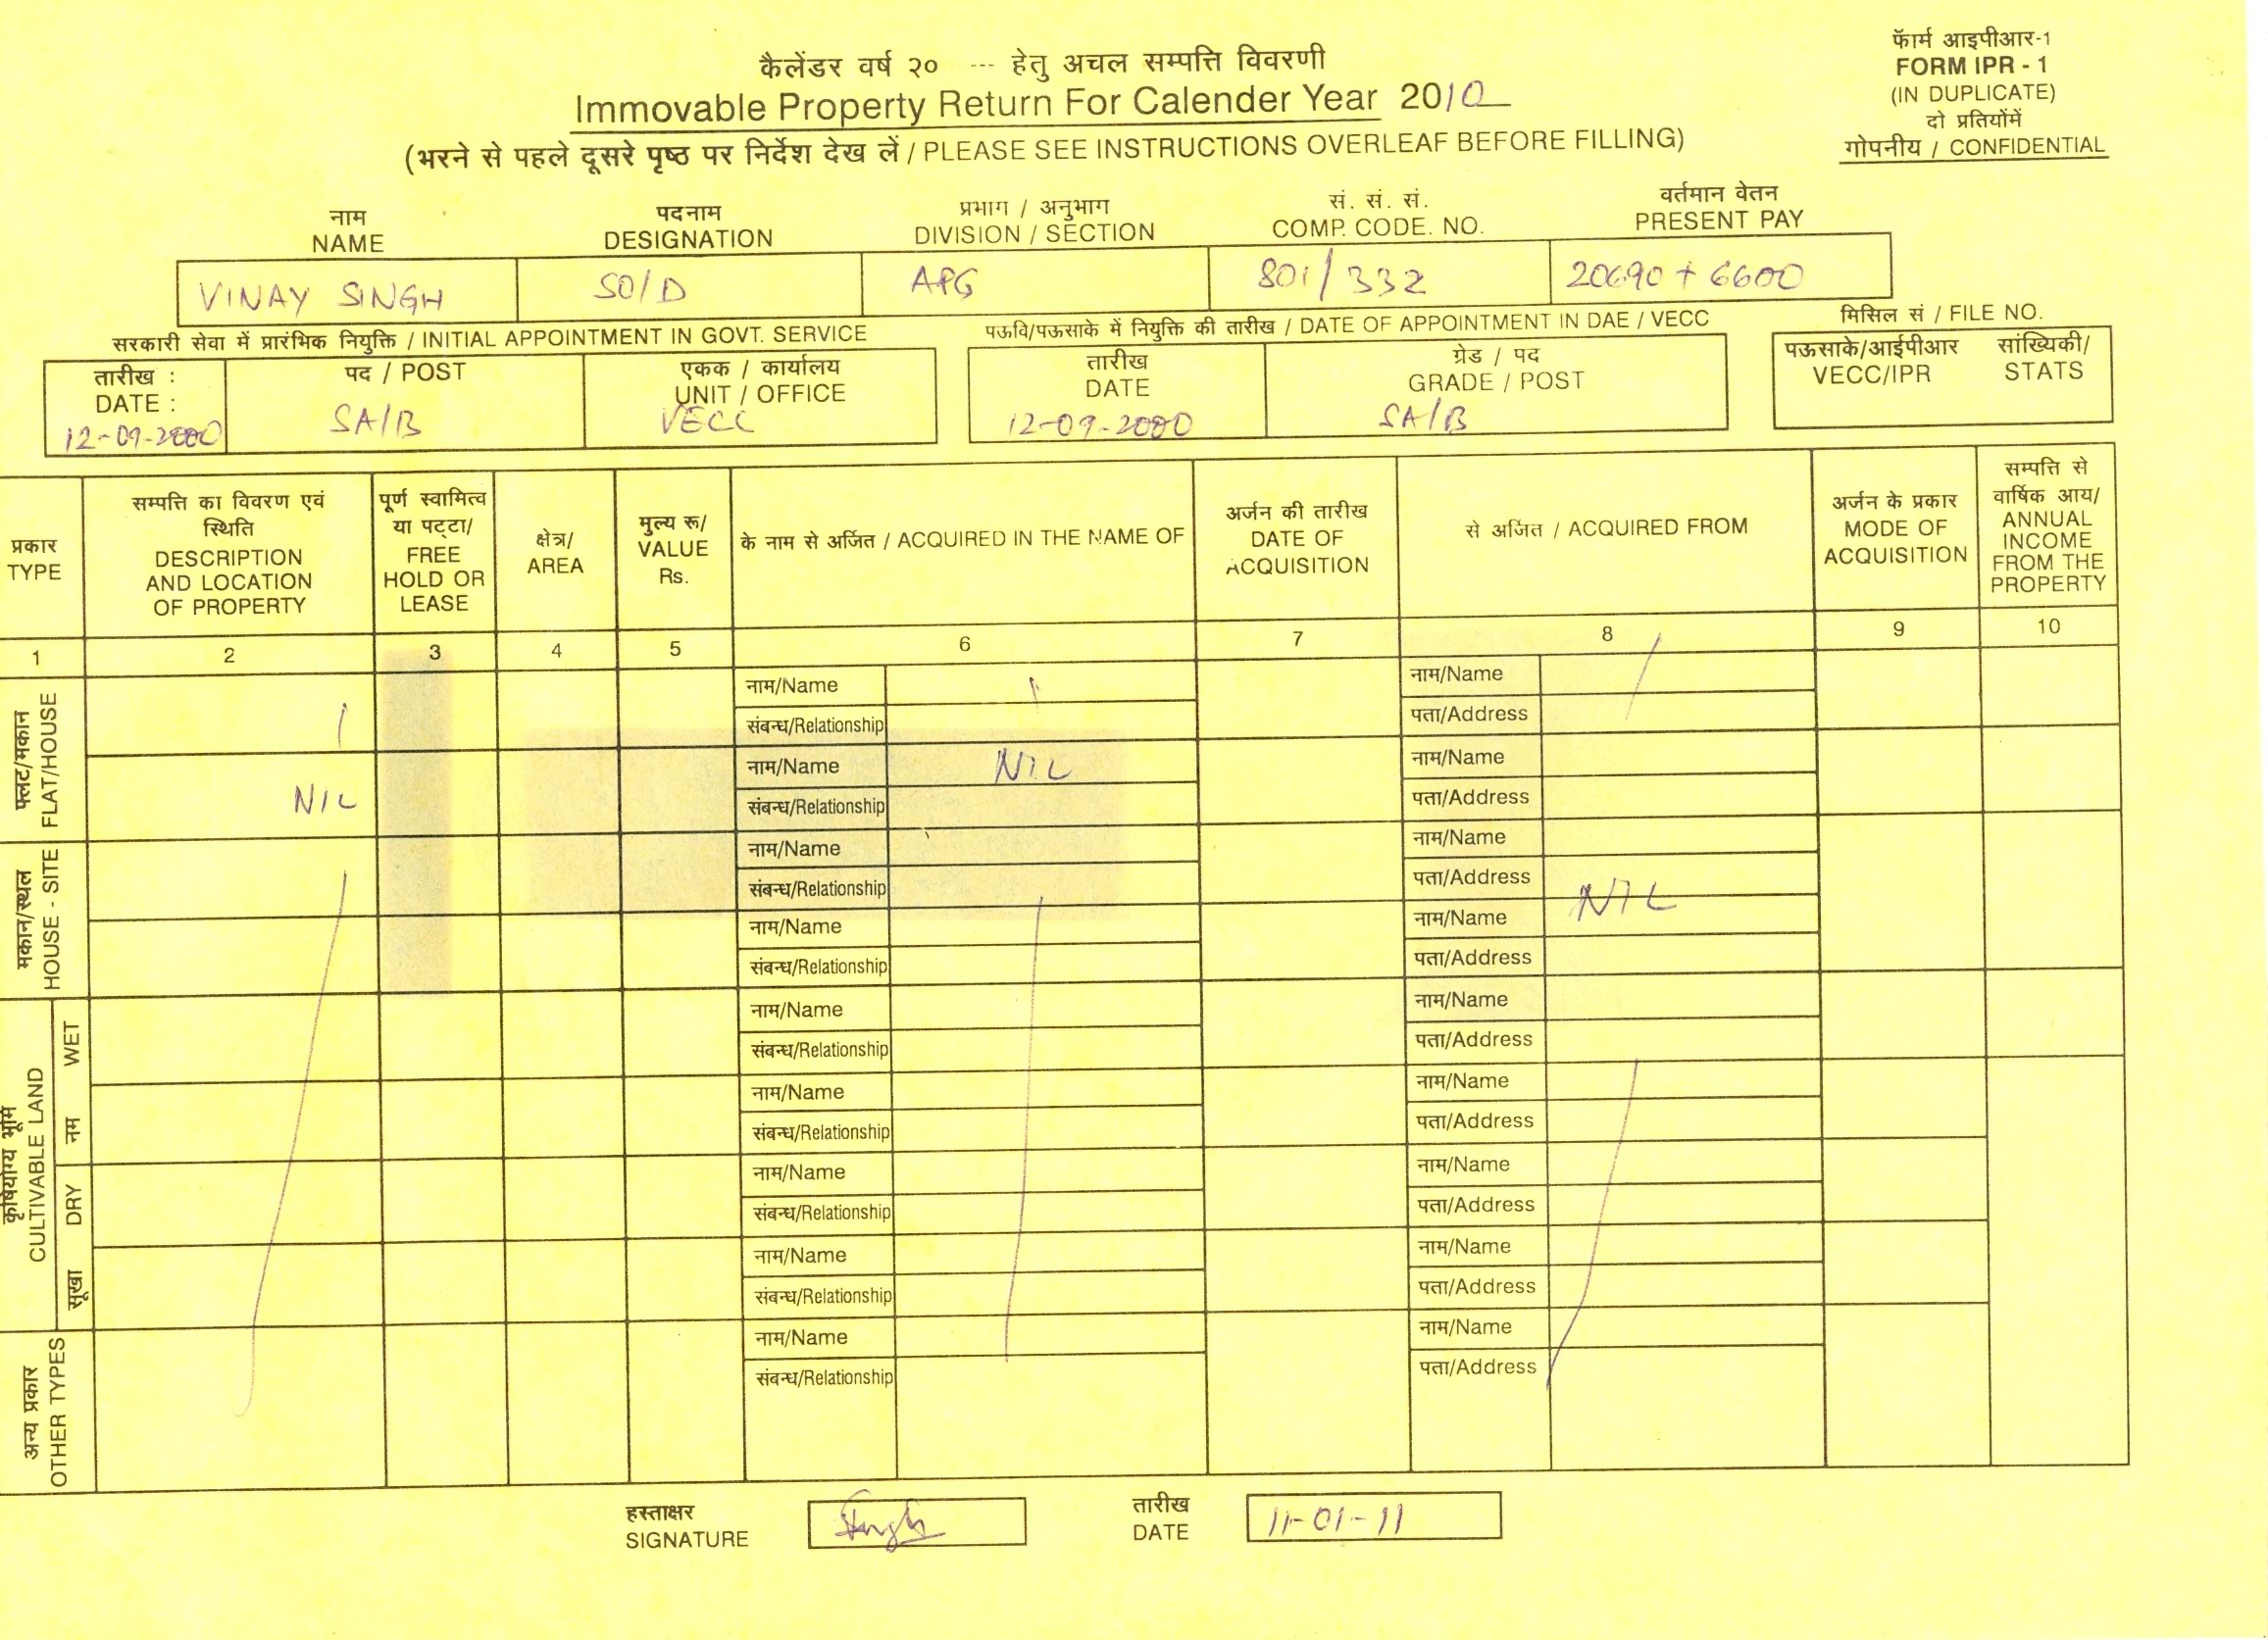 फॅार्म आइपीआर-1
FORM IPR - 1
(IN DUPLICATE)
दो प्रतियोंमें
गोपनीय / CONFIDENTIAL
कैलेंडर वर्ष २० --- हेतु अचल सम्पत्ति विवरणी
Immovable Property Return For Calender Year 2010
(भरने से पहले दूसरे पृष्ठ पर निर्देश देख लें / PLEASE SEE INSTRUCTIONS OVERLEAF BEFORE FILLING)
नाम पदनाम प्रभाग / अनुभाग सं. सं. सं. वर्तमान वेतन
NAME DESIGNATION DIVISION / SECTION COMP. CODE. NO. PRESENT PAY
VINAY SINGH SO/D APG 801/332 20690 + 6600
सरकारी सेवा में प्रारंभिक नियुक्ति / INITIAL APPOINTMENT IN GOVT. SERVICE
पऊवि/पऊसाके में नियुक्ति की तारीख / DATE OF APPOINTMENT IN DAE / VECC
मिसिल सं / FILE NO.
तारीख : पद / POST एकक / कार्यालय तारीख ग्रेड / पद पऊसाके/आईपीआर सांख्यिकी/
DATE : UNIT / OFFICE DATE GRADE / POST VECC/IPR STATS
12-09-2000 SA/B VECC 12-09-2000 SA/B
प्रकार
TYPE
सम्पत्ति का विवरण एवं
स्थिति
DESCRIPTION
AND LOCATION
OF PROPERTY
पूर्ण स्वामित्व
या पट्टा/
FREE
HOLD OR
LEASE
क्षेत्र/
AREA
मुल्य रू/
VALUE
Rs.
के नाम से अर्जित / ACQUIRED IN THE NAME OF
अर्जन की तारीख
DATE OF
ACQUISITION
से अर्जित / ACQUIRED FROM
अर्जन के प्रकार
MODE OF
ACQUISITION
सम्पत्ति से
वार्षिक आय/
ANNUAL
INCOME
FROM THE
PROPERTY
1 2 3 4 5 6 7 8 9 10
फ्लट/मकान
FLAT/HOUSE
नाम/Name नाम/Name
संबन्ध/Relationship पता/Address
NIL
नाम/Name NIL नाम/Name
संबन्ध/Relationship पता/Address
मकान/स्थल
HOUSE - SITE
नाम/Name नाम/Name
संबन्ध/Relationship पता/Address
NIL
नाम/Name नाम/Name
संबन्ध/Relationship पता/Address
कृषियोग्य भूमि
CULTIVABLE LAND
नम WET
नाम/Name नाम/Name
संबन्ध/Relationship पता/Address
नाम/Name नाम/Name
संबन्ध/Relationship पता/Address
सूखा DRY
नाम/Name नाम/Name
संबन्ध/Relationship पता/Address
नाम/Name नाम/Name
संबन्ध/Relationship पता/Address
अन्य प्रकार
OTHER TYPES
नाम/Name नाम/Name
संबन्ध/Relationship पता/Address
हस्ताक्षर तारीख
SIGNATURE Singh DATE 11-01-11